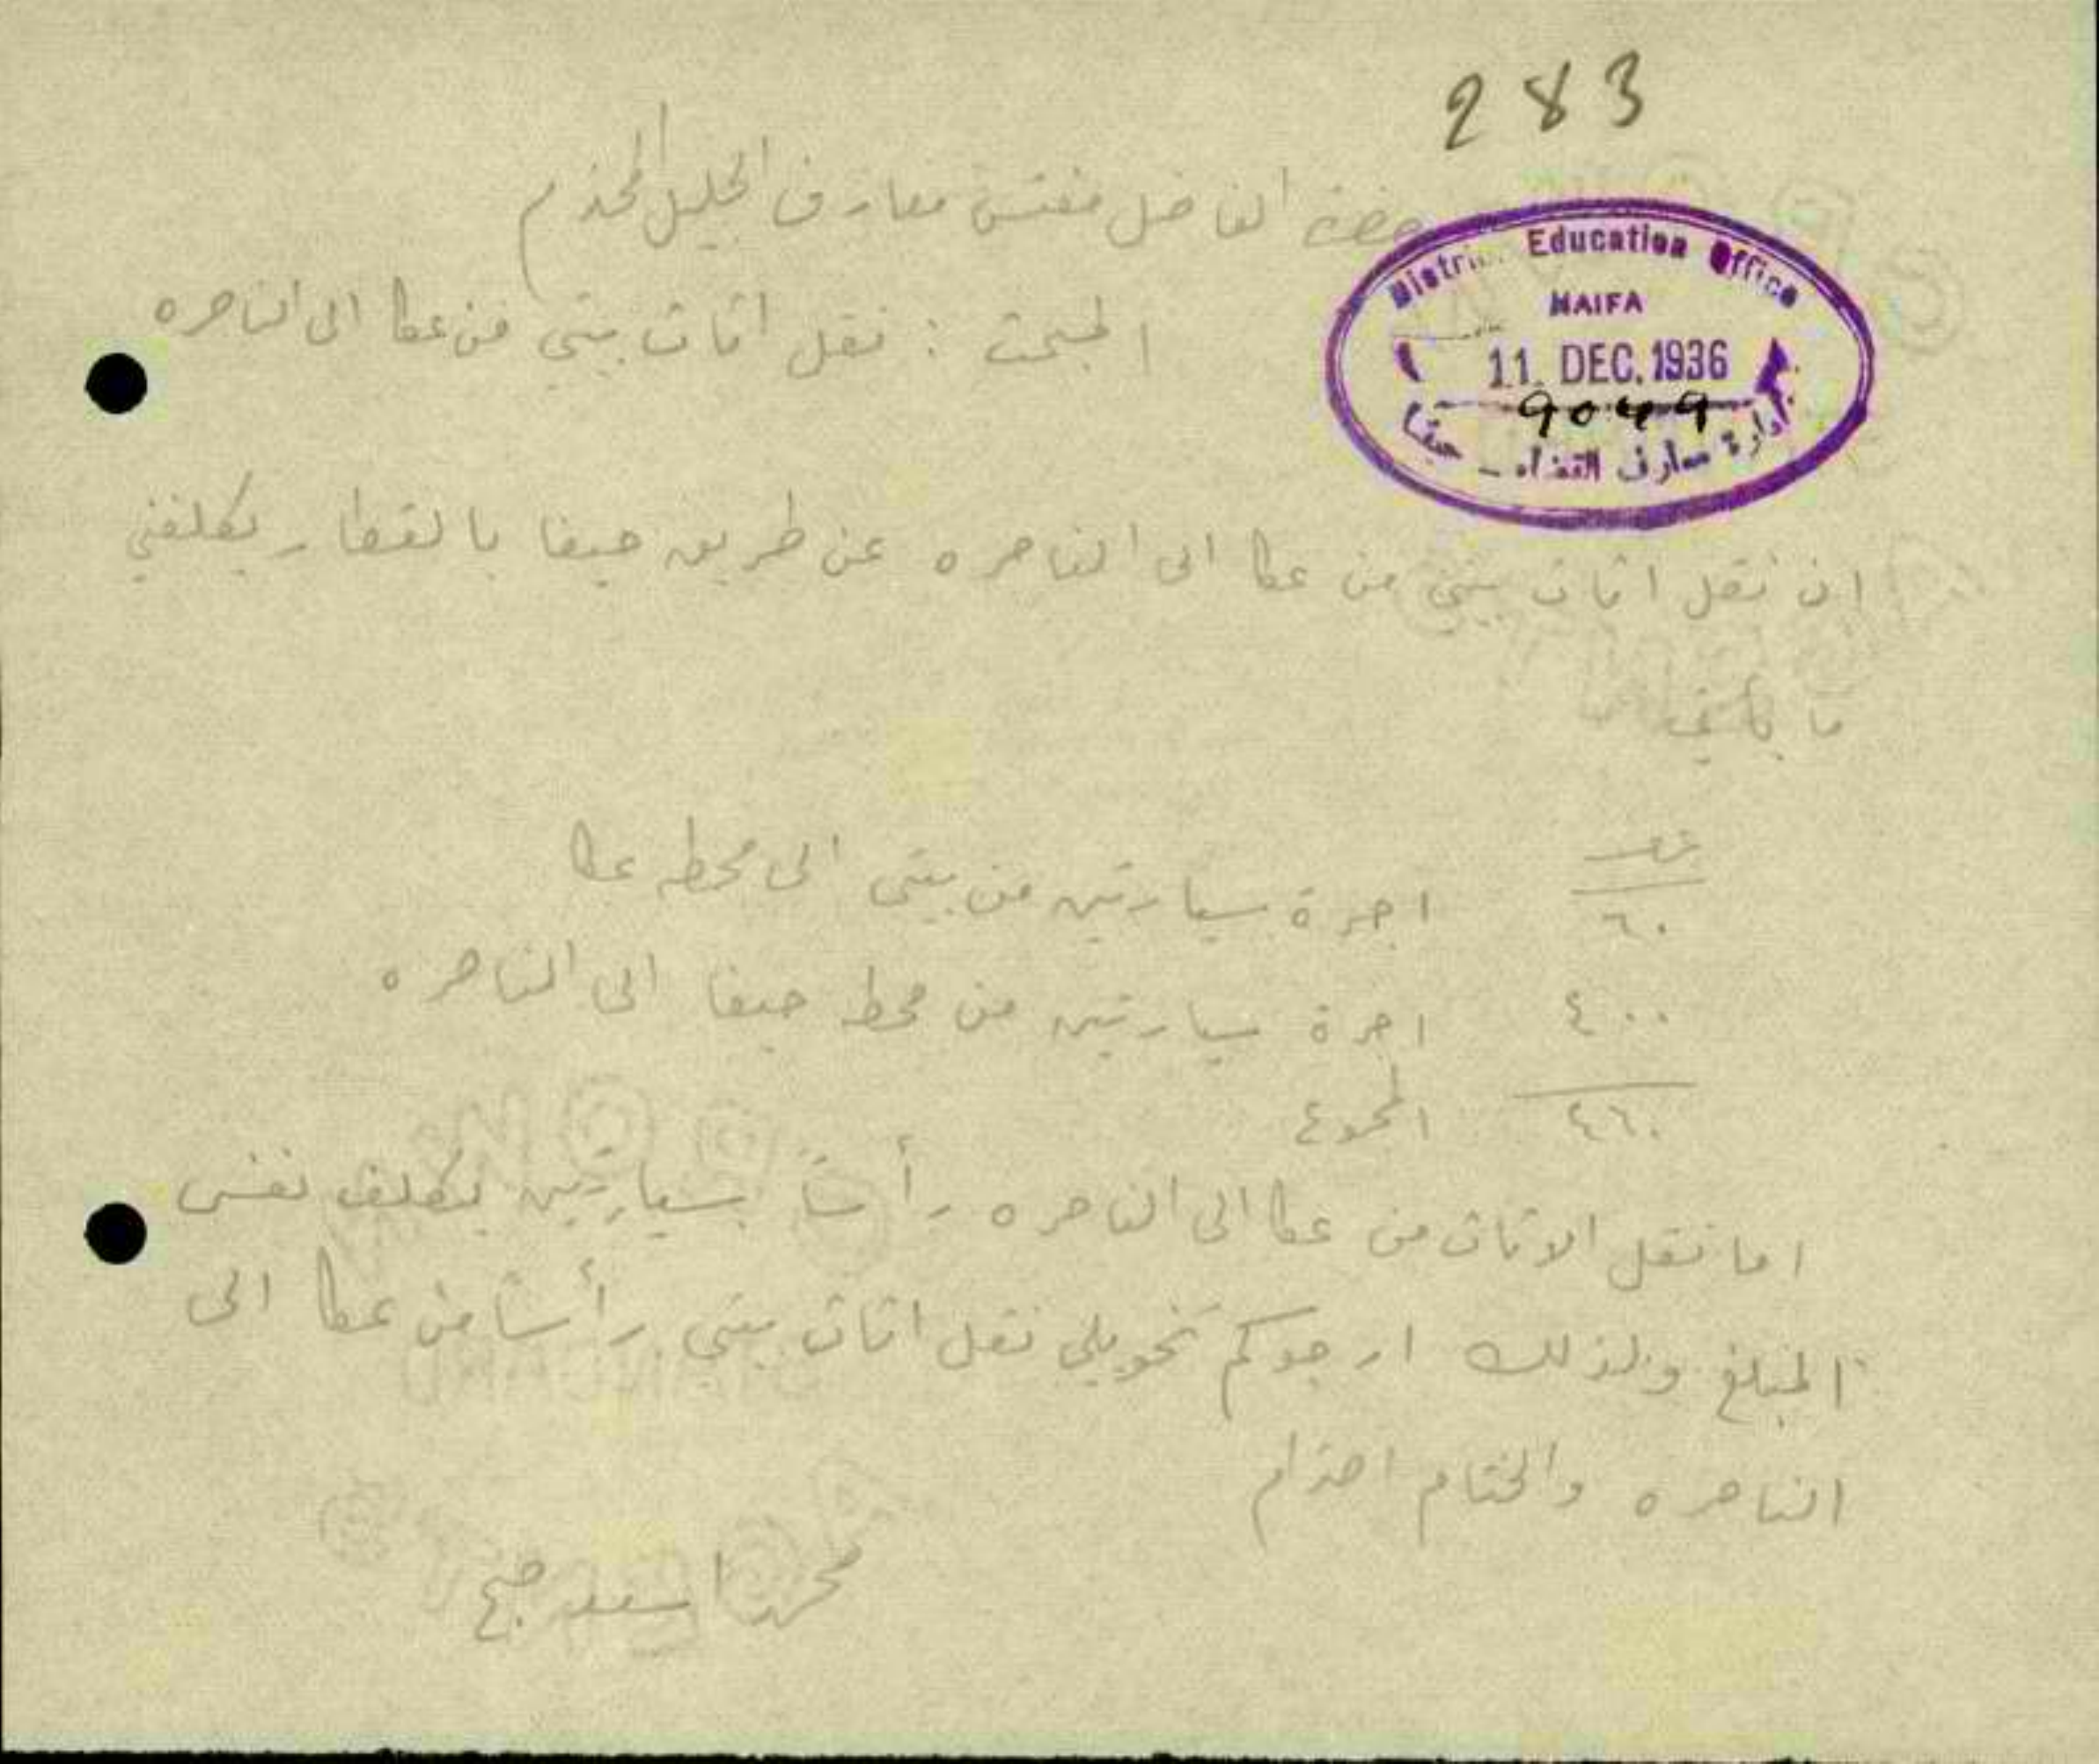 283
حضرة الفاضل مفتش معارف الجليل المحترم
District Education Office
HAIFA
11. DEC. 1936
9049
ادارة معارف القضاء - حيفا
المبحث : نقل اثاث بيتي من عكا الى الناصره
ان نقل اثاث بيتي من عكا الى الناصره عن طريق حيفا بالقطار يكلفني
ما يأتي
٦٠ اجرة سيارتين من بيتي الى محطه عكا
٤٠٠ اجرة سيارتين من محطة حيفا الى الناصره
٤٦٠ المجموع
اما نقل الاثاث من عكا الى الناصره رأساً بسيارتين يكلف نفس
المبلغ ولذلك ارجوكم تخويلي نقل اثاث بيتي رأساً من عكا الى
الناصره والختام احترام
محمد اسعد